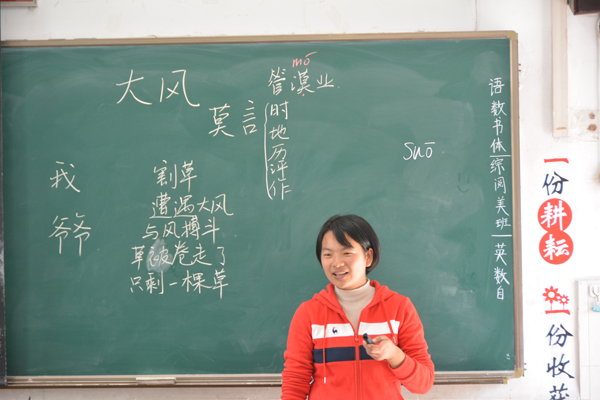 大风
莫言
mō
管漠业
时地历评作
suō
我
爷爷
割草
遭遇大风
与风搏斗
草被卷走了
只剩一棵草
语教书体综阅美班英数自
一份耕耘
一份收获